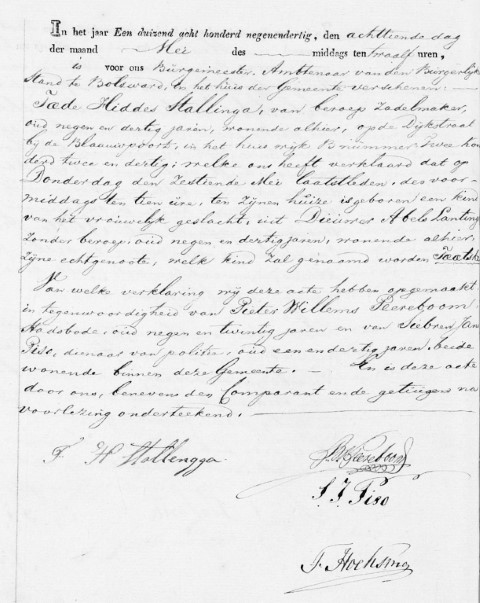 In het jaar Een duizend acht honderd negenendertig, den achttiende dag
der maand Mei des middags ten twaalf uren,
is voor ons Burgemeester, Ambtenaar van den Burgerlijke
Stand te Bolsward, in het huis der Gemeente verschenen:
Tæde Hiddes Stallinga, van beroep Zadelmaker,
oud negen en dertig jaren, wonende alhier, op de Dijkstraat
bij de Blaauwpoort, in het huis wijk B nummer twee hon
derd twee en dertig; welke ons heeft verklaard dat op
Donderdag den Zestiende Mei laatstleden, des voor-
middags ten tien ure, ten zijnen huize is geboren een kind
van het vrouwelijk geslacht, uit Dieuwer Abels Lanting
zonder beroep, oud negen en dertig jaren, wonende alhier,
zijne echtgenoote, welk kind zal genaamd worden
Van welke verklaring wij deze acte hebben opgemaakt
in tegenwoordigheid van Pieter Willems Peereboom
Stadsbode, oud negen en twintig jaren en van Seebren Jan
Piso, dienaar van politie, oud een en dertig jaren beide
wonende binnen deze Gemeente. — En is deze acte
door ons, benevens den Comparant ende getuigen na
voorlezing onderteekend.
T. H Stallengga.
PW Peereboom
S. J. Piso